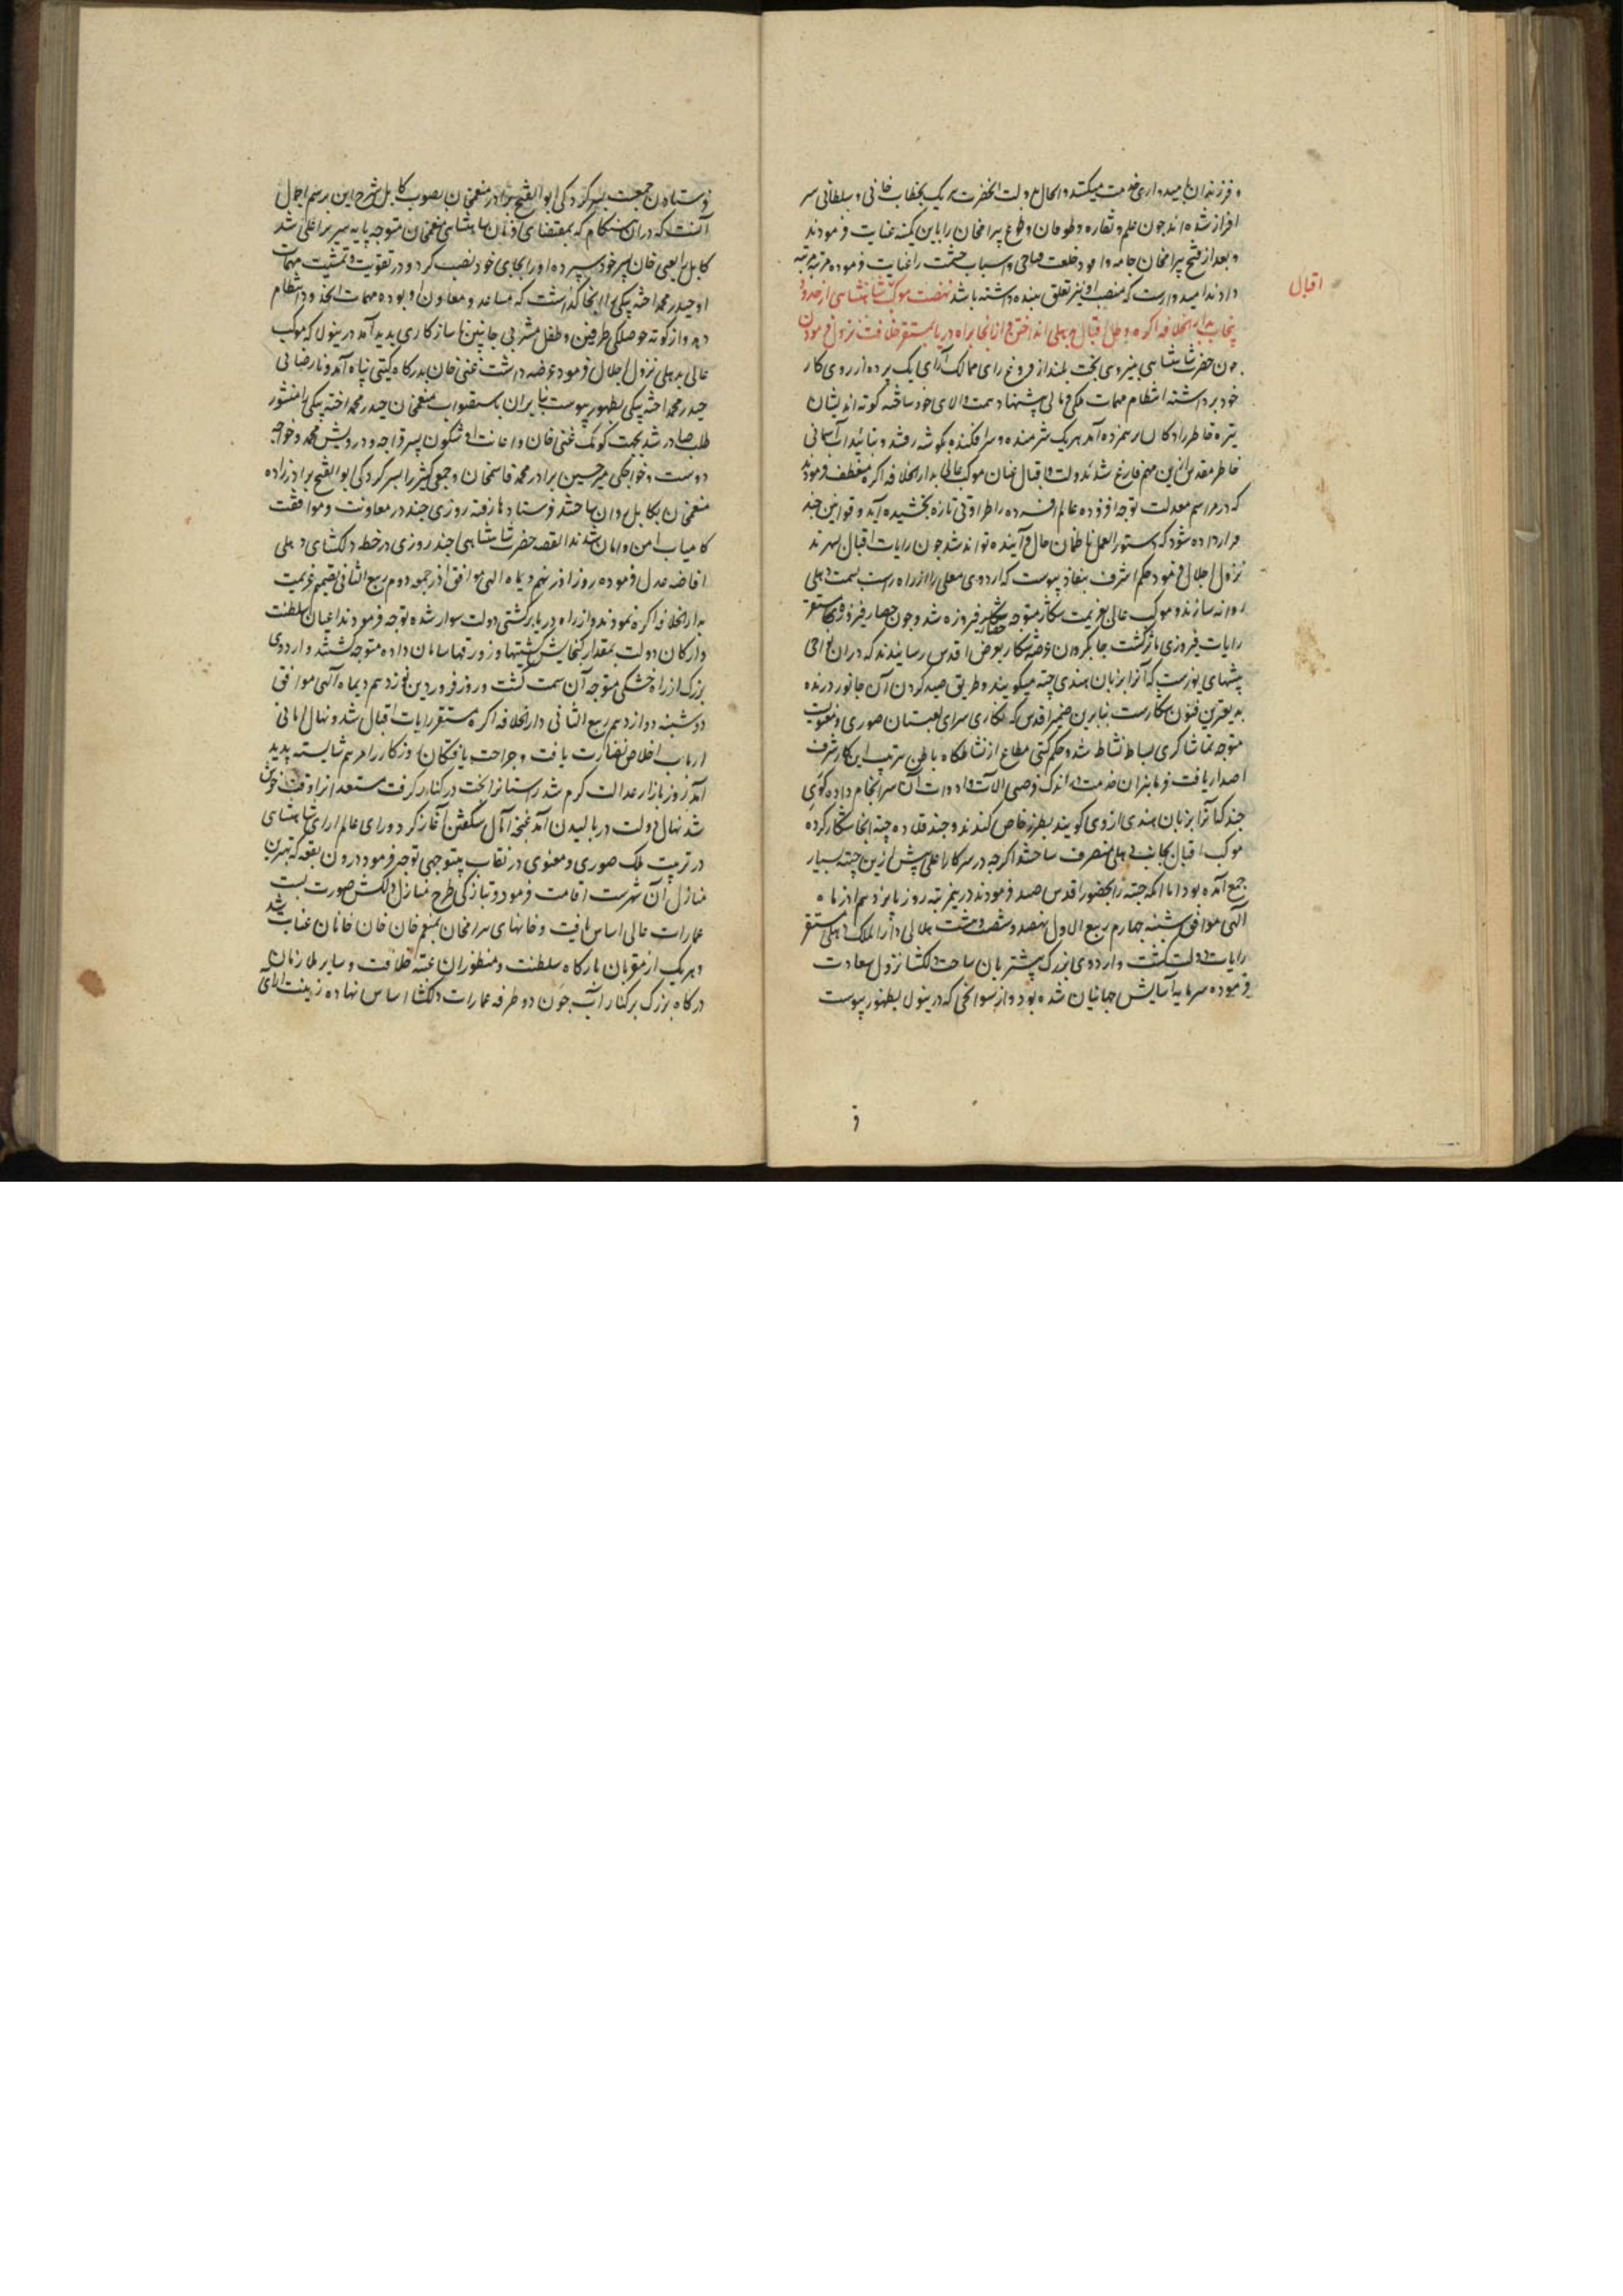 و فرزندان بامیدواری خدمت میکنند و الحال بدولت آنحضرت هر یک بخطاب خانی و سلطانی سر
افراز شده اند چون علم و نقاره و طومان و طوغ بیرامخان را باین کمینه عنایت فرمودند
و بعد از فتح بیرامخان جامه وا مود خلعت فتاحی و اسباب حشمت را عنایت فرموده مرتبه مرتبه
دادند امیدوارست که منصب او نیز تعلق ببنده داشته باشد نهضت موکب شاهنشاهی از حدود
اقبال
پنجاب بدار الخلافه اکره و ظل اقبال بدهلی انداختن و از انجا براه دریا بمستقر خلافت نزول فرمودن
چون حضرت شاهنشاهی بنیروی بخت بلند از فروغ رای ممالک آرای یک پرده از روی کار
خود برداشته انتظام مهمات ملکی و مالی پیشنهاد همت والای خود ساختند کوته اندیشان
تیره خاطر را دکان برهمزده آمد هر یک شرمنده و سرافکنده بگوشه رفتند و بتائید آسمانی
خاطر مقدس ازین مهم فارغ شد بدولت و اقبال عنان موکب عالی بدار الخلافه اکره منعطف فرمودند
که در مراسم معدلت توجه افزوده عالم افسرده را طراوتی تازه بخشیده آید و قوانین چند
قرار داده شود که دستور العمل ناظمان حال و آینده تواند شد چون رایات اقبال بسهرند
نزول اجلال فرمود حکم اشرف بنفاذ پیوست که اردوی معلی را از راه راست بسمت دهلی
روانه سازند و موکب عالی بعزیمت شکار متوجه حصار فیروزه شد و چون حصار فیروزه مستقر
رایات فیروزی مآثر گشت چابکروان عرصه شکار بعرض اقدس رسانیدند که دران نواحی
بیشهای یوزست که آنرا بزبان هندی چیته میگویند و طریق صید کردن آن جانور درنده
بدیعترین فنون شکارست بنابرین ضمیر اقدس که نگاری سرای لعبتان صوری و معنویست
متوجه تماشا کری بساط نشاط شد و حکم گیتی مطاع از نشاطگاه باطن بترتیب این کار شرف
اصدار یافت فرمانبران خدمت در اندک فرصتی آلات و ادوات آن سرانجام داده گوی
چند که آنرا بزبان هندی اودی گویند بطرز خاص کندند و چند قلاده چیته انجا شکار کرده
موکب اقبال بجانب دهلی منصرف ساختند اگرچه در سرکار اعلی پیش ازین چیته بسیار
جمع آمده بود اما آنکه چیته را بحضور اقدس صید فرمودند درینمرتبه روز پانزدهم آذر ماه
الهی موافق شنبه چهارم ربیع الاول نهصد و شصت و هشت هلالی دار الملک دهلی مستقر
رایات دولت گشت و اردوی بزرگ پیشتر بان ساحت دلکشا نزول سعادت
فرموده سرمایه آسایش جهانیان شده بود و از سوانحی که درینولا بظهور پیوست
ف
فرستادن جمعیت بسرکردگی ابو الفتح برادر منعمخان بصوب کابل شرح این برسم اجمال
آنست که دران هنگام که بمقتضای فرمان شاهنشاهی منعمخان متوجه پایه سریر اعلی شد
کابل را بغنی خان پسر خود سپرده او را بجای خود نصب کرد و در تقویت و تمشیت مهمات
او حیدر محمد اخته بیگی را انجا گذاشت که مساعد و معاون او بوده مهمات انحدود انتظام
دهد و از کوته حوصلگی طرفین و طفل مشربی جانبین ناسازکاری پدید آمد درینولا که موکب
عالی بدهلی نزول اجلال فرمود عرضه داشت غنی خان بدرگاه گیتی پناه آمد و نارضائی
حیدر محمد اخته بیگی بظهور پیوست بنابران باستصواب منعمخان حیدر محمد اخته بیگی را منشور
طلب صادر شد بجهت کومک غنی خان و اعانت او شگون پسر قراجه و درویش محمد و خواجه
دوست و خواجگی میر حسین برادر محمد قاسمخان و جمعی کثیر را بسرکردگی ابو الفتح برادرزاده
منعمخان بکابل روان ساختند فرستادها رفته روزی چند در معاونت و موافقت
کامیاب امن و امان شدند القصه حضرت شاهنشاهی چند روزی در خطه دلکشای دهلی
افاضه عدل فرموده روز آذر نهم دیماه الهی موافق آخر جمعه دوم ربیع الثانی تصمیم عزیمت
بدار الخلافه اکره نمودند و از راه دریا بر کشتی دولت سوار شده توجه فرمودند اعیان سلطنت
و ارکان دولت بمقدار گنجایش کشتیها و زورقها سامان داده متوجه گشتند و اردوی
بزرگ از راه خشکی متوجه آن سمت گشت و روز فروردین نوزدهم دیماه الهی موافق
دوشنبه دوازدهم ربیع الثانی دار الخلافه اکره مستقر رایات اقبال شد و نهال امانی
ارباب اخلاص نضارت یافت و جراحت یافتگان روزگار را مرهم شایسته پدید
آمد روز بازار عدالت گرم شد راستانرا بخت در کنار گرفت مستعدانرا وقت خوش
شد نهال دولت در بالیدن آمد غنچه آمال شگفتن آغاز کرد و رای عالم آرای شاهنشاهی
در تربیت ملک صوری و معنوی در نقاب بیتوجهی توجه فرمود درون بقعه که بهترین
منازل آن شهرست اقامت فرمود و بتازگی طرح منازل دلکش صورت بست
عمارات عالی اساس یافت و خانهای بیرامخان بمنعم خان خان خانان عنایت شد
و هر یک از مقربان بارگاه سلطنت و منظوران عتبه خلافت و سایر ملازمان
درگاه بزرگ بر کنار آب جون دو طرفه عمارات دلکشا اساس نهاده زینت افزای